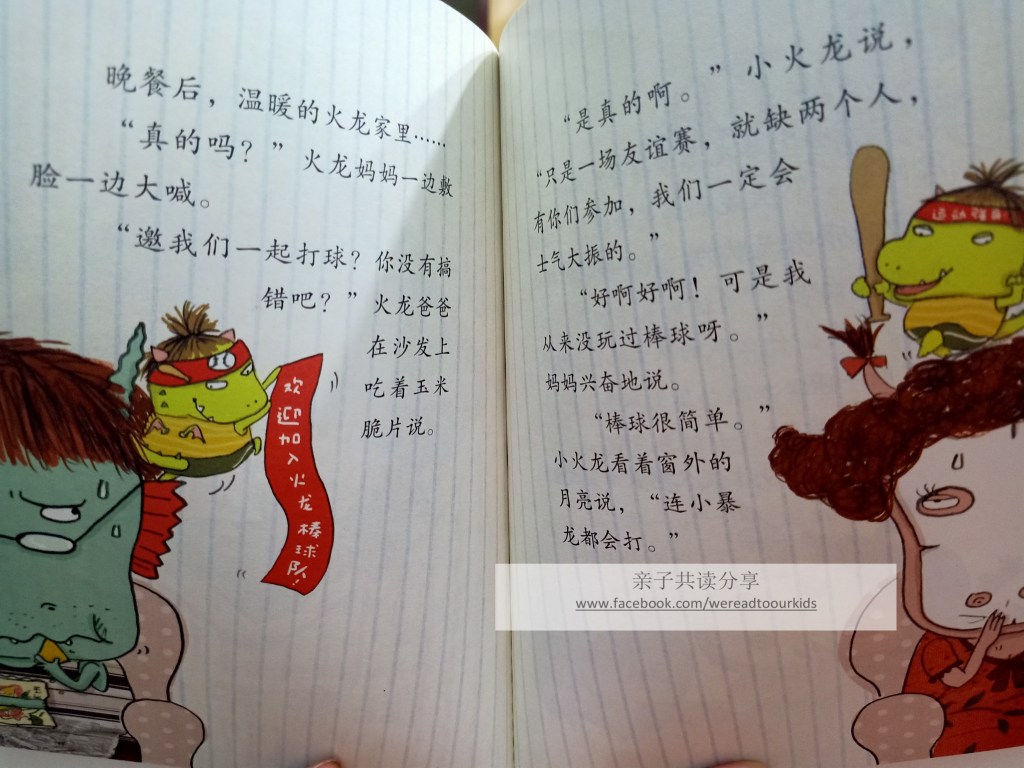 晚餐后，温暖的火龙家里……
“真的吗？”火龙妈妈一边敷
脸一边大喊。
“邀我们一起打球？你没有搞
错吧？”火龙爸爸
在沙发上
吃着玉米
脆片说。
欢迎加入火龙棒球队!
“是真的啊。”小火龙说，
“只是一场友谊赛，就缺两个人，
有你们参加，我们一定会
士气大振的。”
“好啊好啊！可是我
从来没玩过棒球呀。”
妈妈兴奋地说。
“棒球很简单。”
小火龙看着窗外的
月亮说，“连小暴
龙都会打。”
亲子共读分享
www.facebook.com/wereadtoourkids